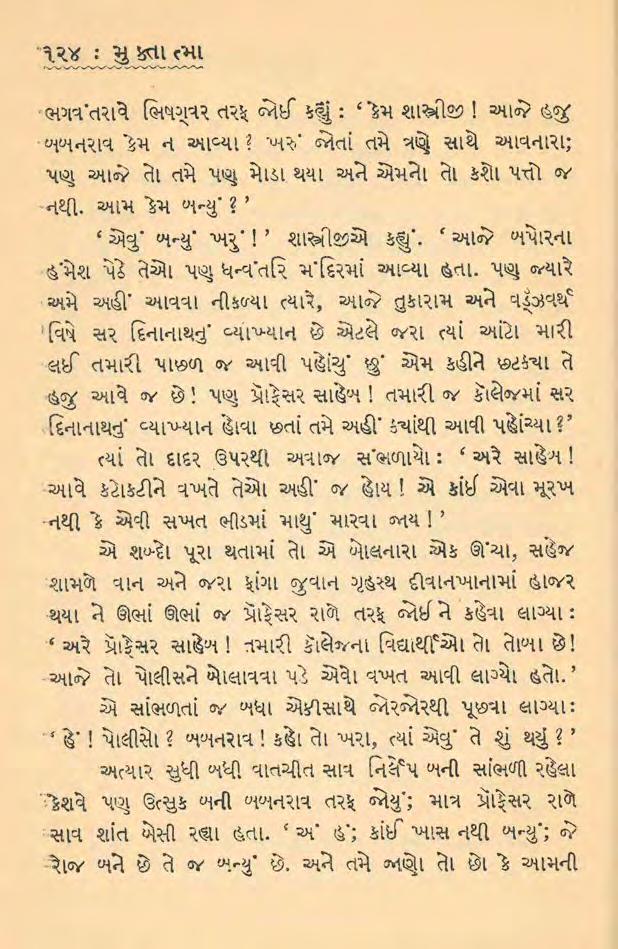 ૧૨૪ : મુક્તાત્મા
ભગવંતરાવે ભિષગ્વર તરફ જોઈ કહ્યું : ‘ કેમ શાસ્ત્રીજી ! આજે હજુ
બબનરાવ કેમ ન આવ્યા ? ખરું જોતાં તમે ત્રણે સાથે આવનારા;
પણ આજે તો તમે પણ મોડા થયા અને એમનો તો કશો પત્તો જ
નથી. આમ કેમ બન્યું ? ’
‘ એવું બન્યું ખરું ! ’ શાસ્ત્રીજીએ કહ્યું. ‘ આજે બપોરના
હંમેશ પેઠે તેઓ પણ ધન્વંતરિ મંદિરમાં આવ્યા હતા. પણ જ્યારે
અમે અહીં આવવા નીકળ્યા ત્યારે, આજે તુકારામ અને વર્ડ્ઝવર્થ
વિષે સર દિનાનાથનું વ્યાખ્યાન છે એટલે જરા ત્યાં આંટો મારી
લઈ તમારી પાછળ જ આવી પહોંચું છું એમ કહીને છટક્યા તે
હજુ આવે જ છે ! પણ પ્રોફેસર સાહેબ ! તમારી જ કૉલેજમાં સર
દિનાનાથનું વ્યાખ્યાન હોવા છતાં તમે અહીં ક્યાંથી આવી પહોંચ્યા ? ’
ત્યાં તો દાદર ઉપરથી અવાજ સંભળાયો : ‘ અરે સાહેબ !
આવે કટોકટીને વખતે તેઓ અહીં જ હોય ! એ કાંઈ એવા મૂરખ
નથી કે એવી સખત ભીડમાં માથું મારવા જાય ! ’
એ શબ્દો પૂરા થતામાં તો એ બોલનારા એક ઊંચા, સહેજ
શામળે વાન અને જરા ફાંગા જુવાન ગૃહસ્થ દીવાનખાનામાં હાજર
થયા ને ઊભાં ઊભાં જ પ્રૉફેસર રાળે તરફ જોઈને કહેવા લાગ્યા :
‘ અરે પ્રૉફેસર સાહેબ ! તમારી કૉલેજના વિદ્યાર્થીઓ તો તોબા છે !
આજે તો પોલીસને બોલાવવા પડે એવો વખત આવી લાગ્યો હતો. ’
એ સાંભળતાં જ બધા એકીસાથે જોરજોરથી પૂછવા લાગ્યા :
‘ હેં ! પોલીસો ? બબનરાવ ! કહો તો ખરા, ત્યાં એવું તે શું થયું ? ’
અત્યાર સુધી બધી વાતચીત સાવ નિર્લેપ બની સાંભળી રહેલા
કેશવે પણ ઉત્સુક બની બબનરાવ તરફ જોયું; માત્ર પ્રૉફેસર રાળે
સાવ શાંત બેસી રહ્યા હતા. ‘ અં હં; કાંઈ ખાસ નથી બન્યું; જે
રોજ બને છે તે જ બન્યું છે. અને તમે જાણો તો છો કે આમની